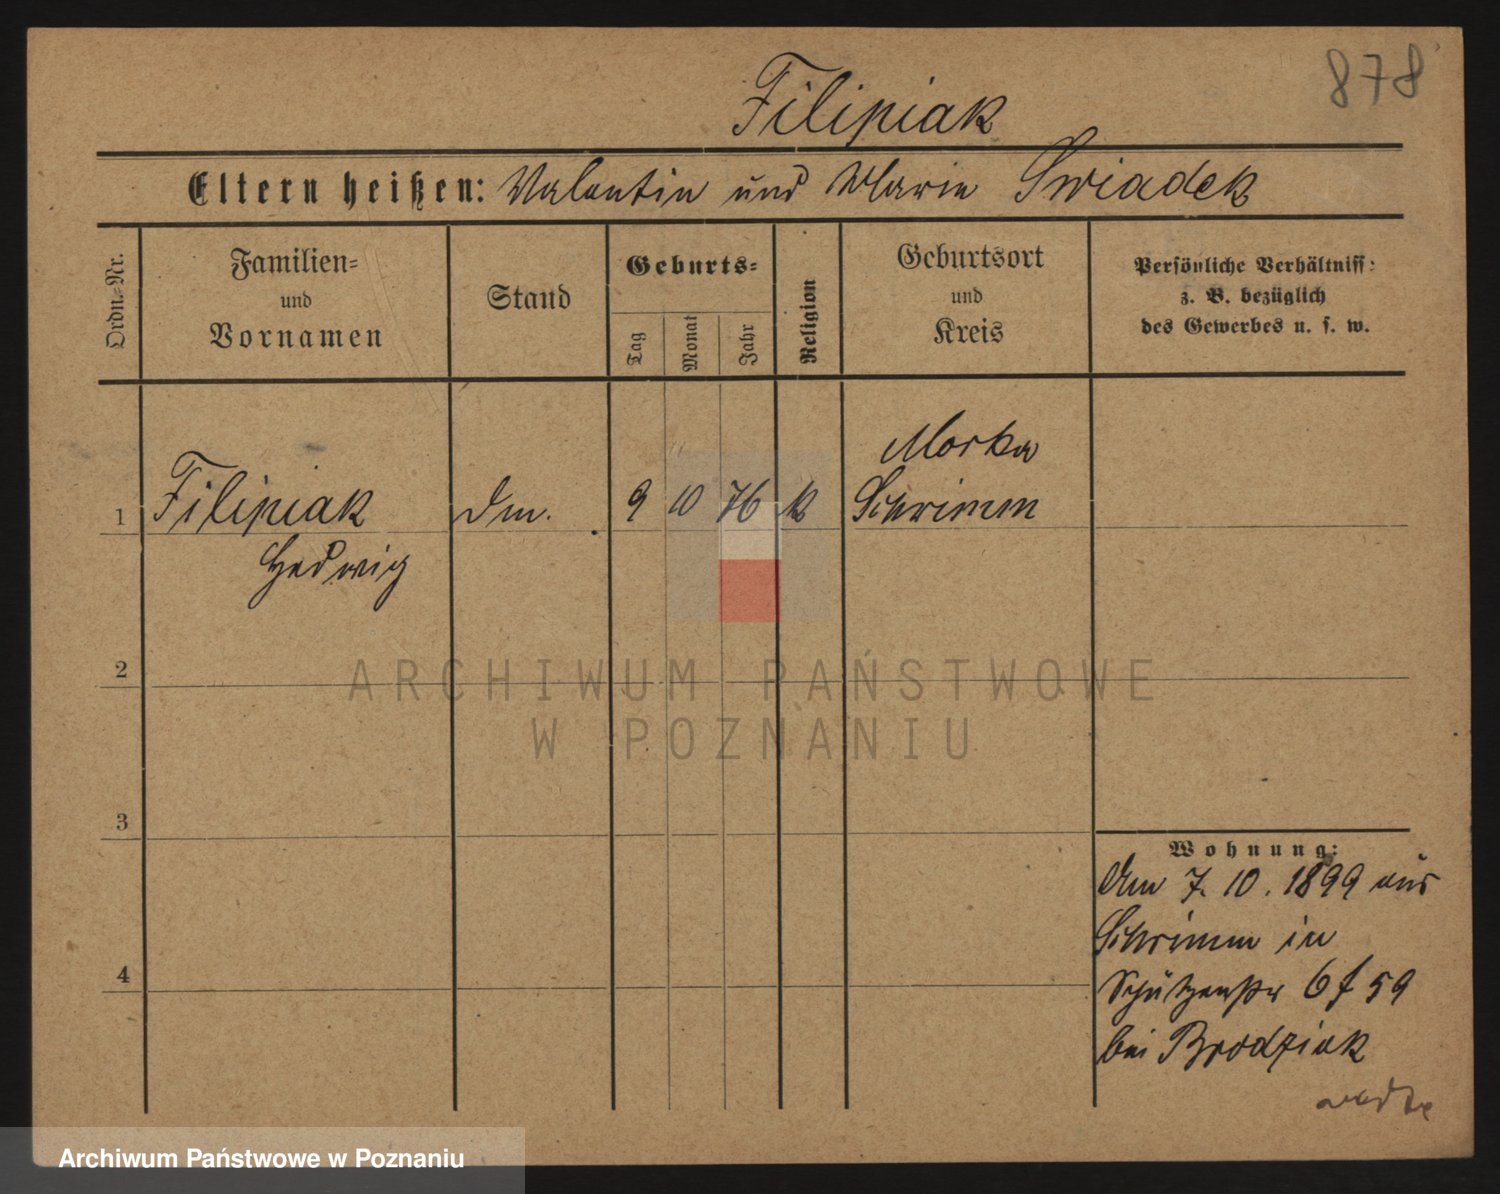 878
Filipiak
Eltern heißen: Valentin und Marie Swiadek
Ordn.-Nr.
Familien-
und
Vornamen
Stand
Geburts-
Tag
Monat
Jahr
Religion
Geburtsort
und
Kreis
Persönliche Verhältniss:
z. B. bezüglich
des Gewerbes u. s. w.
Morka
1 Filipiak Dm. 9 10 76 k Schrimm
Hedwig
2
ARCHIWUM PAŃSTWOWE
W POZNANIU
3
Wohnung:
Am 7. 10. 1899 aus
Schrimm in
4
Schützenstr 6 f 59
bei Brodziak
Archiwum Państwowe w Poznaniu